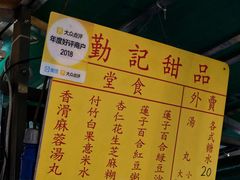 大众点评
年度好评商户
2018
勤記甜品
堂食
外賣
香滑麻蓉湯丸
付竹白果意米水
杏仁花生芝麻糊
蓮子百合紅豆
蓮子百合綠豆沙
湯丸
大
小
各式糖水 20